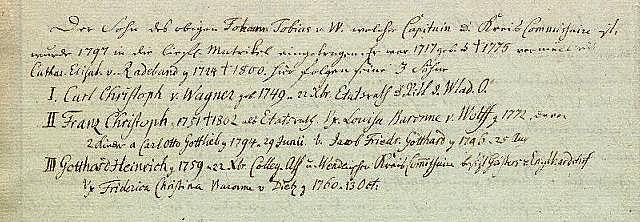 Der Sohn des obigen Johann Tobias v W. welcher Capitain u. Kreis Commissaire ist
wurde 1797 in die Liefl. Matrikel eingetragen er war 1717 geb. † 1775 vermält mit
Cathar. Elisab. v. Radeland g 1724 † 1800. hier folgen seine 3 Söhne
I. Carl Christoph v. Wagner geb 1749. 22 Xbr. Etatsrath u. Ritt. d. Wlad. O.
II Franz Christoph, 1751 † 1802 als Etatsrath. Ux. Louisa Baronne v. Wolff g 1772. deren
2 Kinder a Carl Otto Gottlieb g 1794. 29 Junii. b. Jacob Friedr. Gotthard g 1796. 25
III Gotthard Heinrich g 1759. 22 Xbr. Colleg. Ass u. Wendenscher Kreis Comissaire
Ux Friderica Christina Baronne v Dietz g 1760. 13 Oct.